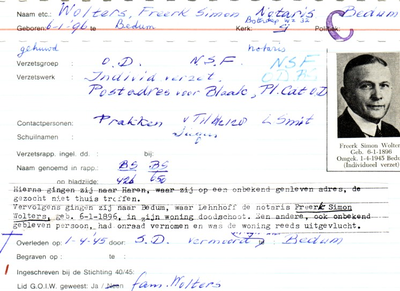 Naam etc.: Wolters, Freerk Simon Notaris Bedum
Geboren: 6-1-96 te Bedum Kerk:
gehuwd notaris
Verzetsgroep : O.D. N.S.F. NSF
Verzetswerk Individ verzet. O.D.
Postadres voor Blaak, Pl. Cat O.D
Contactpersonen: Prakken v Tilburg L Smit
Schuilnamen
Verzetsrapp. ingel. dd. : bij:
Naam genoemd in rapp.: BS BS
no bladzijde: 426
Freerk Simon Wolters
Geb. 6-1-1896
Omgek. 1-4-1945 Bedum
(Individueel verzet)
Hierna gingen zij naar Haren, waar zij op een onbekend gebleven adres, de
gezocht niet thuis troffen.
Vervolgens gingen zij naar Bedum, waar Lehnhoff de notaris Freerk Simon
Wolters, geb. 6-1-1896, in zijn woning doodschoot. Een andere, ook onbekend
gebleven persoon, had onraad vernomen en was de woning reeds uitgevlucht.
Overleden op : 1-4-45 door: S.D. vermoord Bedum
Begraven op : te
Ingeschreven bij de Stichting 40/45:
Lid G.O.I.W. geweest: Ja / Neen fam. Wolters